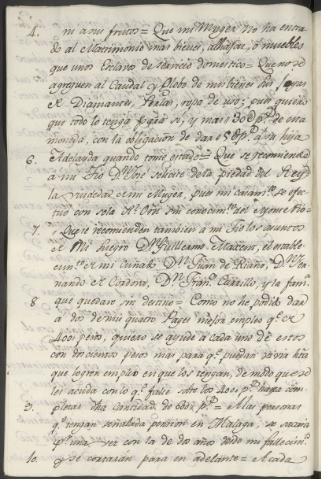 4. ni a mis frutos = Que mi Muger no ha entra
do al Matrimonio mas bienes, alhajas, ó muebles
que unos Esclavos de servicio domestico = Que no se
agreguen al Caudal y Dote de mis bienes las joyas
de Diamantes, Perlas, ropa de uso; pues quiero
que todo lo tenga para si, y mas 300 p.s de esta
moneda, con la obligacion de dar 150 p.s á su hija
6. Adelayda quando tome estado = Que se recomiende
á mi Tio D.n solicite de la piedad del Rey
la viudedad de mi Muger, pues mi casam.to se efec
tuo con solo conocim.to del
7. = Que se recomienden tambien á mi Tio los asuntos
de mi Suegro D.n Guillermo Macteen, el estable
cim.to de mi Cuñado D.n Juan de Riaño, D.n Fer
nando de Cordova, D.n Fran.co Carrillo, y la fam.a
8. que quedan sin destino = Como no he podido dar
á dos de mis quatro Pages mejor empleo q.e de
400 pesos, quiero se ayude á cada uno de estos
con doscientos pesos mas para q.e puedan vivir hta
que logren empleo en que los tengan, de modo que se
les asista con lo q.e falte sbre los 400 p.s hasta com
9. pletar dha cantidad de 600 p.s = A las personas
q.e tengan señalada pension en Malaga, se socorra
p.r una vez con la de dos años dsde mi fallecim.to
10. y se cortarán para en adelante = A cada